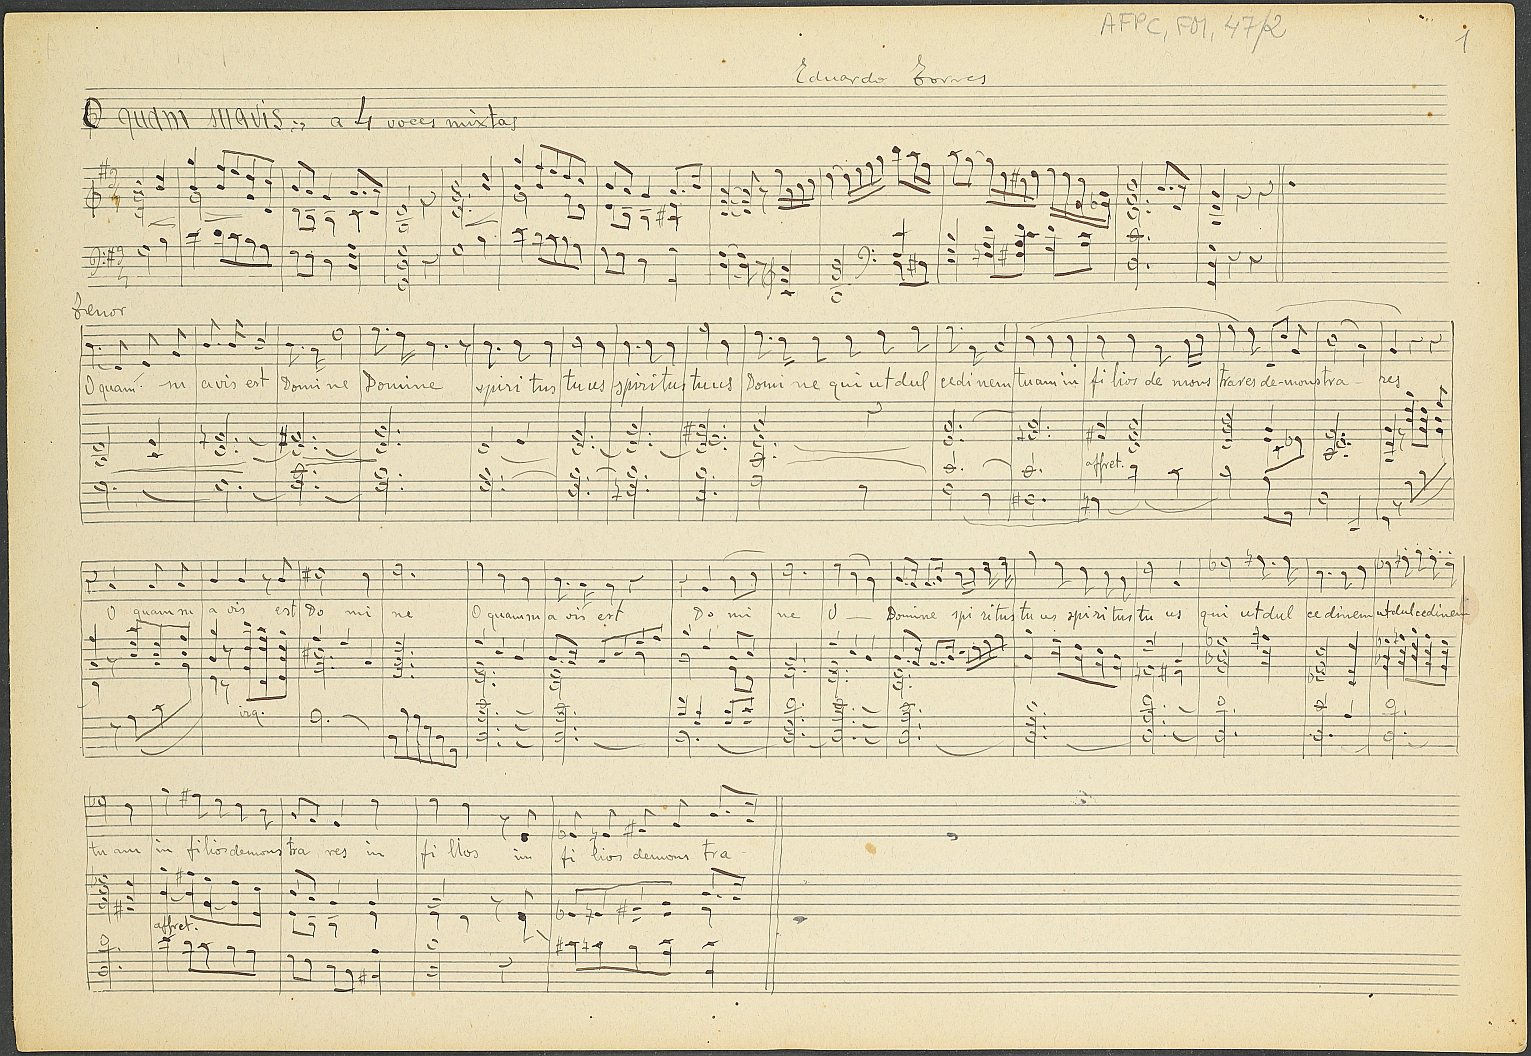 AFPC, FM, 47/2
1
Eduardo Torres
O quam suavis.. a 4 voces mixtas
Tenor
O quam su a vis est Domine Domine spiri tus tuus spiritus tuus Domi ne qui ut dul cedi nem tuam in fi lios de mons trares de-monstra - res
affret.
O quam su a vis est Do mi ne O quam su a vis est Do mi ne O — Domine spi ritus tu us spiritus tu us qui ut dul ce dinem ut dulcedinem
izq.
tu am in filios demons tra res in fi lios in fi lios demons tra -
affret.